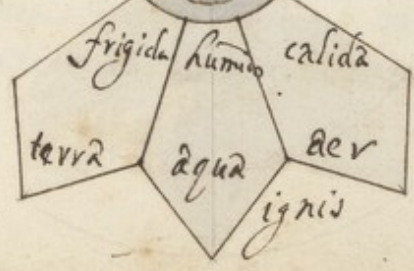 frigida humido calida
terra aqua aer
ignis